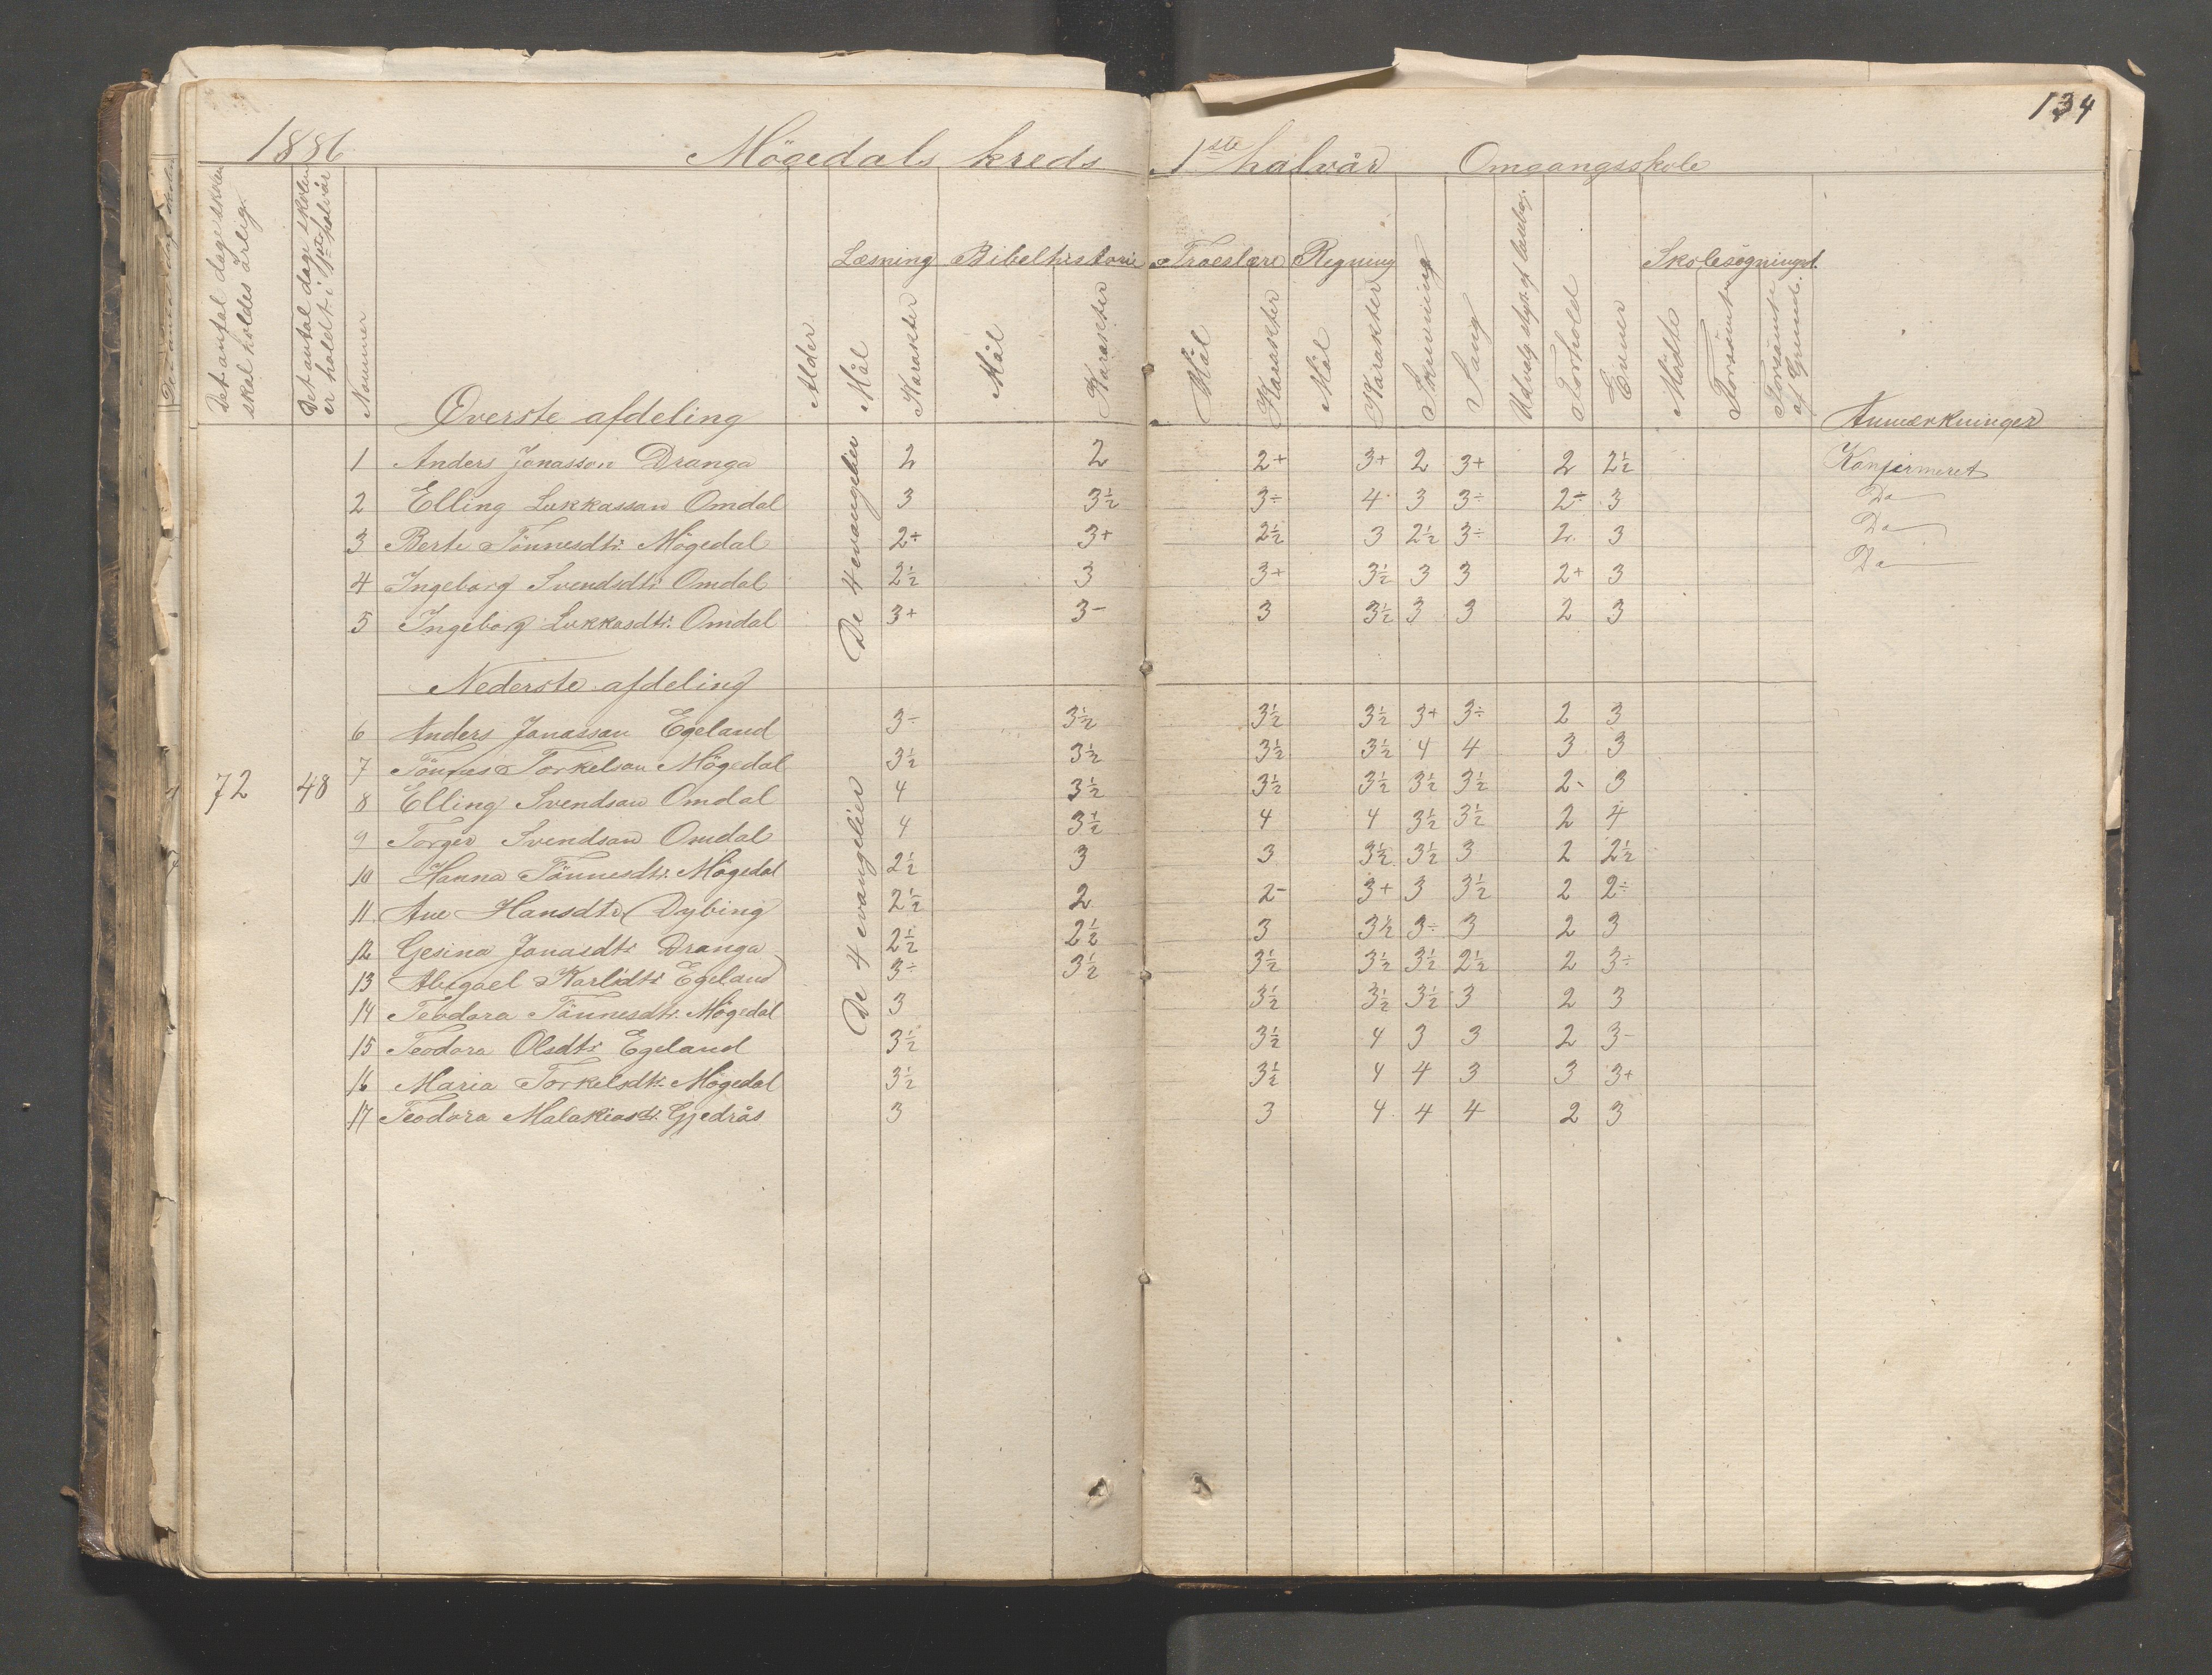 134
1886 Mögedals kreds 1ste halvår Omgangsskole
Det antal dage skolen skal holdes årlig.
Det antal dage skolen er holdt i 1ste halvår
Nommer
Overste afdeling
Alder
Læsning Bibelhistorie Troeslære Regning Skolesøgningst.
Mål Karakter Mål Karakter Mål Karakter Mål Karakter Skrivning Sang Udvalg styk. af læsebog. Forhold Evner Mødte Forsømt Forsømt af Grund. Anmærkninger
De 4 evangelier
1 Anders Jonasson Dranga 2 2 2+ 3+ 2 3+ 2 2½ Konfirmeret
2 Elling Lukkassan Omdal 3 3½ 3÷ 4 3 3÷ 2÷ 3 Do
3 Berte Tönnesdtr. Mögedal 2÷ 3+ 2½ 3 2½ 3÷ 2 3 Do
4 Ingeborg Svendsdtr. Omdal 2½ 3 3+ 3½ 3 3 2+ 3 Do
5 Ingeborg Lukkasdtr. Omdal 3+ 3- 3 3½ 3 3 2 3
Nederste afdeling
De 4 evangelier
6 Anders Jonassan Egeland 3÷ 3½ 3½ 3½ 3+ 3÷ 2 3
7 Tönnes Torkelsan Mögedal 3½ 3½ 3½ 3½ 4 4 3 3
72 48 8 Elling Svendsan Omdal 4 3½ 3½ 3½ 3½ 3½ 2- 3
9 Torger Svendsan Omdal 4 3½ 4 4 3½ 3½ 2 4
10 Hanna Tönnesdtr. Mögedal 2½ 3 3 3½ 3½ 3 2 2½
11 Ane Hansdtr Dybing 2½ 2 2- 3+ 3 3½ 2 2÷
12 Gesina Jonasdtr Dranga 2½ 2½ 3 3½ 3÷ 3 2 3
13 Abigael Karlsdtr Egeland 3÷ 3½ 3½ 3½ 3½ 2½ 2 3÷
14 Teodora Tönnesdtr. Mögedal 3 3½ 3½ 3½ 3 2 3
15 Teodora Olsdtr Egeland 3½ 3½ 4 3 3 2 3-
16 Maria Torkelsdtr. Mögedal 3½ 3½ 4 4 3 3 3+
17 Teodora Malakiasdtr. Gjedrås 3 3 4 4 4 2 3